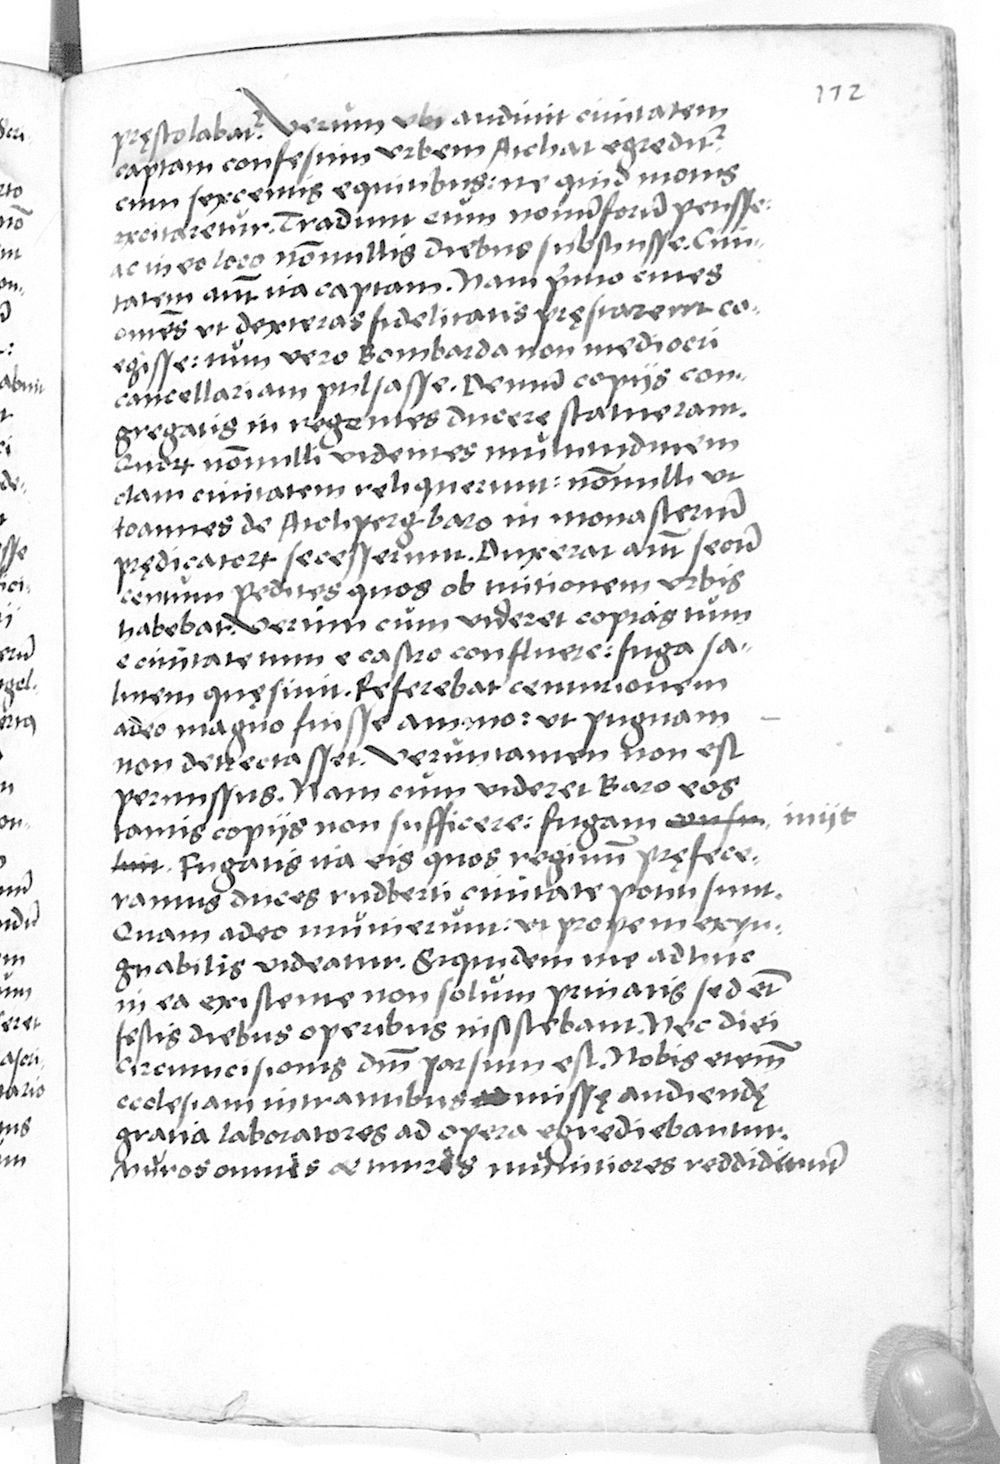 112
pręstolabat᷒. Verum vbi audiuit ciuitatem
captam confestim vrbem Aichat egredit᷒
cum sexcentis equitibus: ne quid motus
excitaretur. Tradunt eum nouū forū petisse:
ac in eo loco nōnullis diebus substitisse. Ciui-
tatem aūt ita captam. Nam primo ciues
omēs vt dexteras fidelitatis pręstarent co-
egisse: tum vero Bombarda non mediocri
cancellariam pulsasse. Demū copijs con-
gregatis in regentes ducere statuerant.
Quoꝝ nōnulli videntes multitudinem
clam ciuitatem reliquerunt: nōnulli vt
Ioannes de Aichperg baro in monasteriū
prędicatoꝝ secesserunt. Duxerat aūt secū
centum pedites quos ob tuitionem vrbis
habebat. Verum cum videret copias tum
e ciuitate tum e castro confluere: fuga sa-
lutem quęsiuit. Referebat centurionem
adeo magno fuisse animo: vt pugnam
non detrectasset. Veruntamen non est
permissus. Nam cum videret Baro eos
tantis copijs non sufficere: fugam consu- inijt
luit. Fugatis ita eis quos regimini pręfece-
ramus duces rudberti ciuitate potiti sunt.
Quam adeo munierunt: vt prope inexpu-
gnabilis videatur. Siquidem me adhuc
in ea existente non solum priuatis sed et̄
festis diebus operibus insistebant. Nec diei
Circumcisionis dn̄i parsum est. Nobis etenī
ecclesiam intrantibus missę audiendę
gratia laboratores ad opera egrediebantur.
Muros omnes & turres munitiores reddiderunt